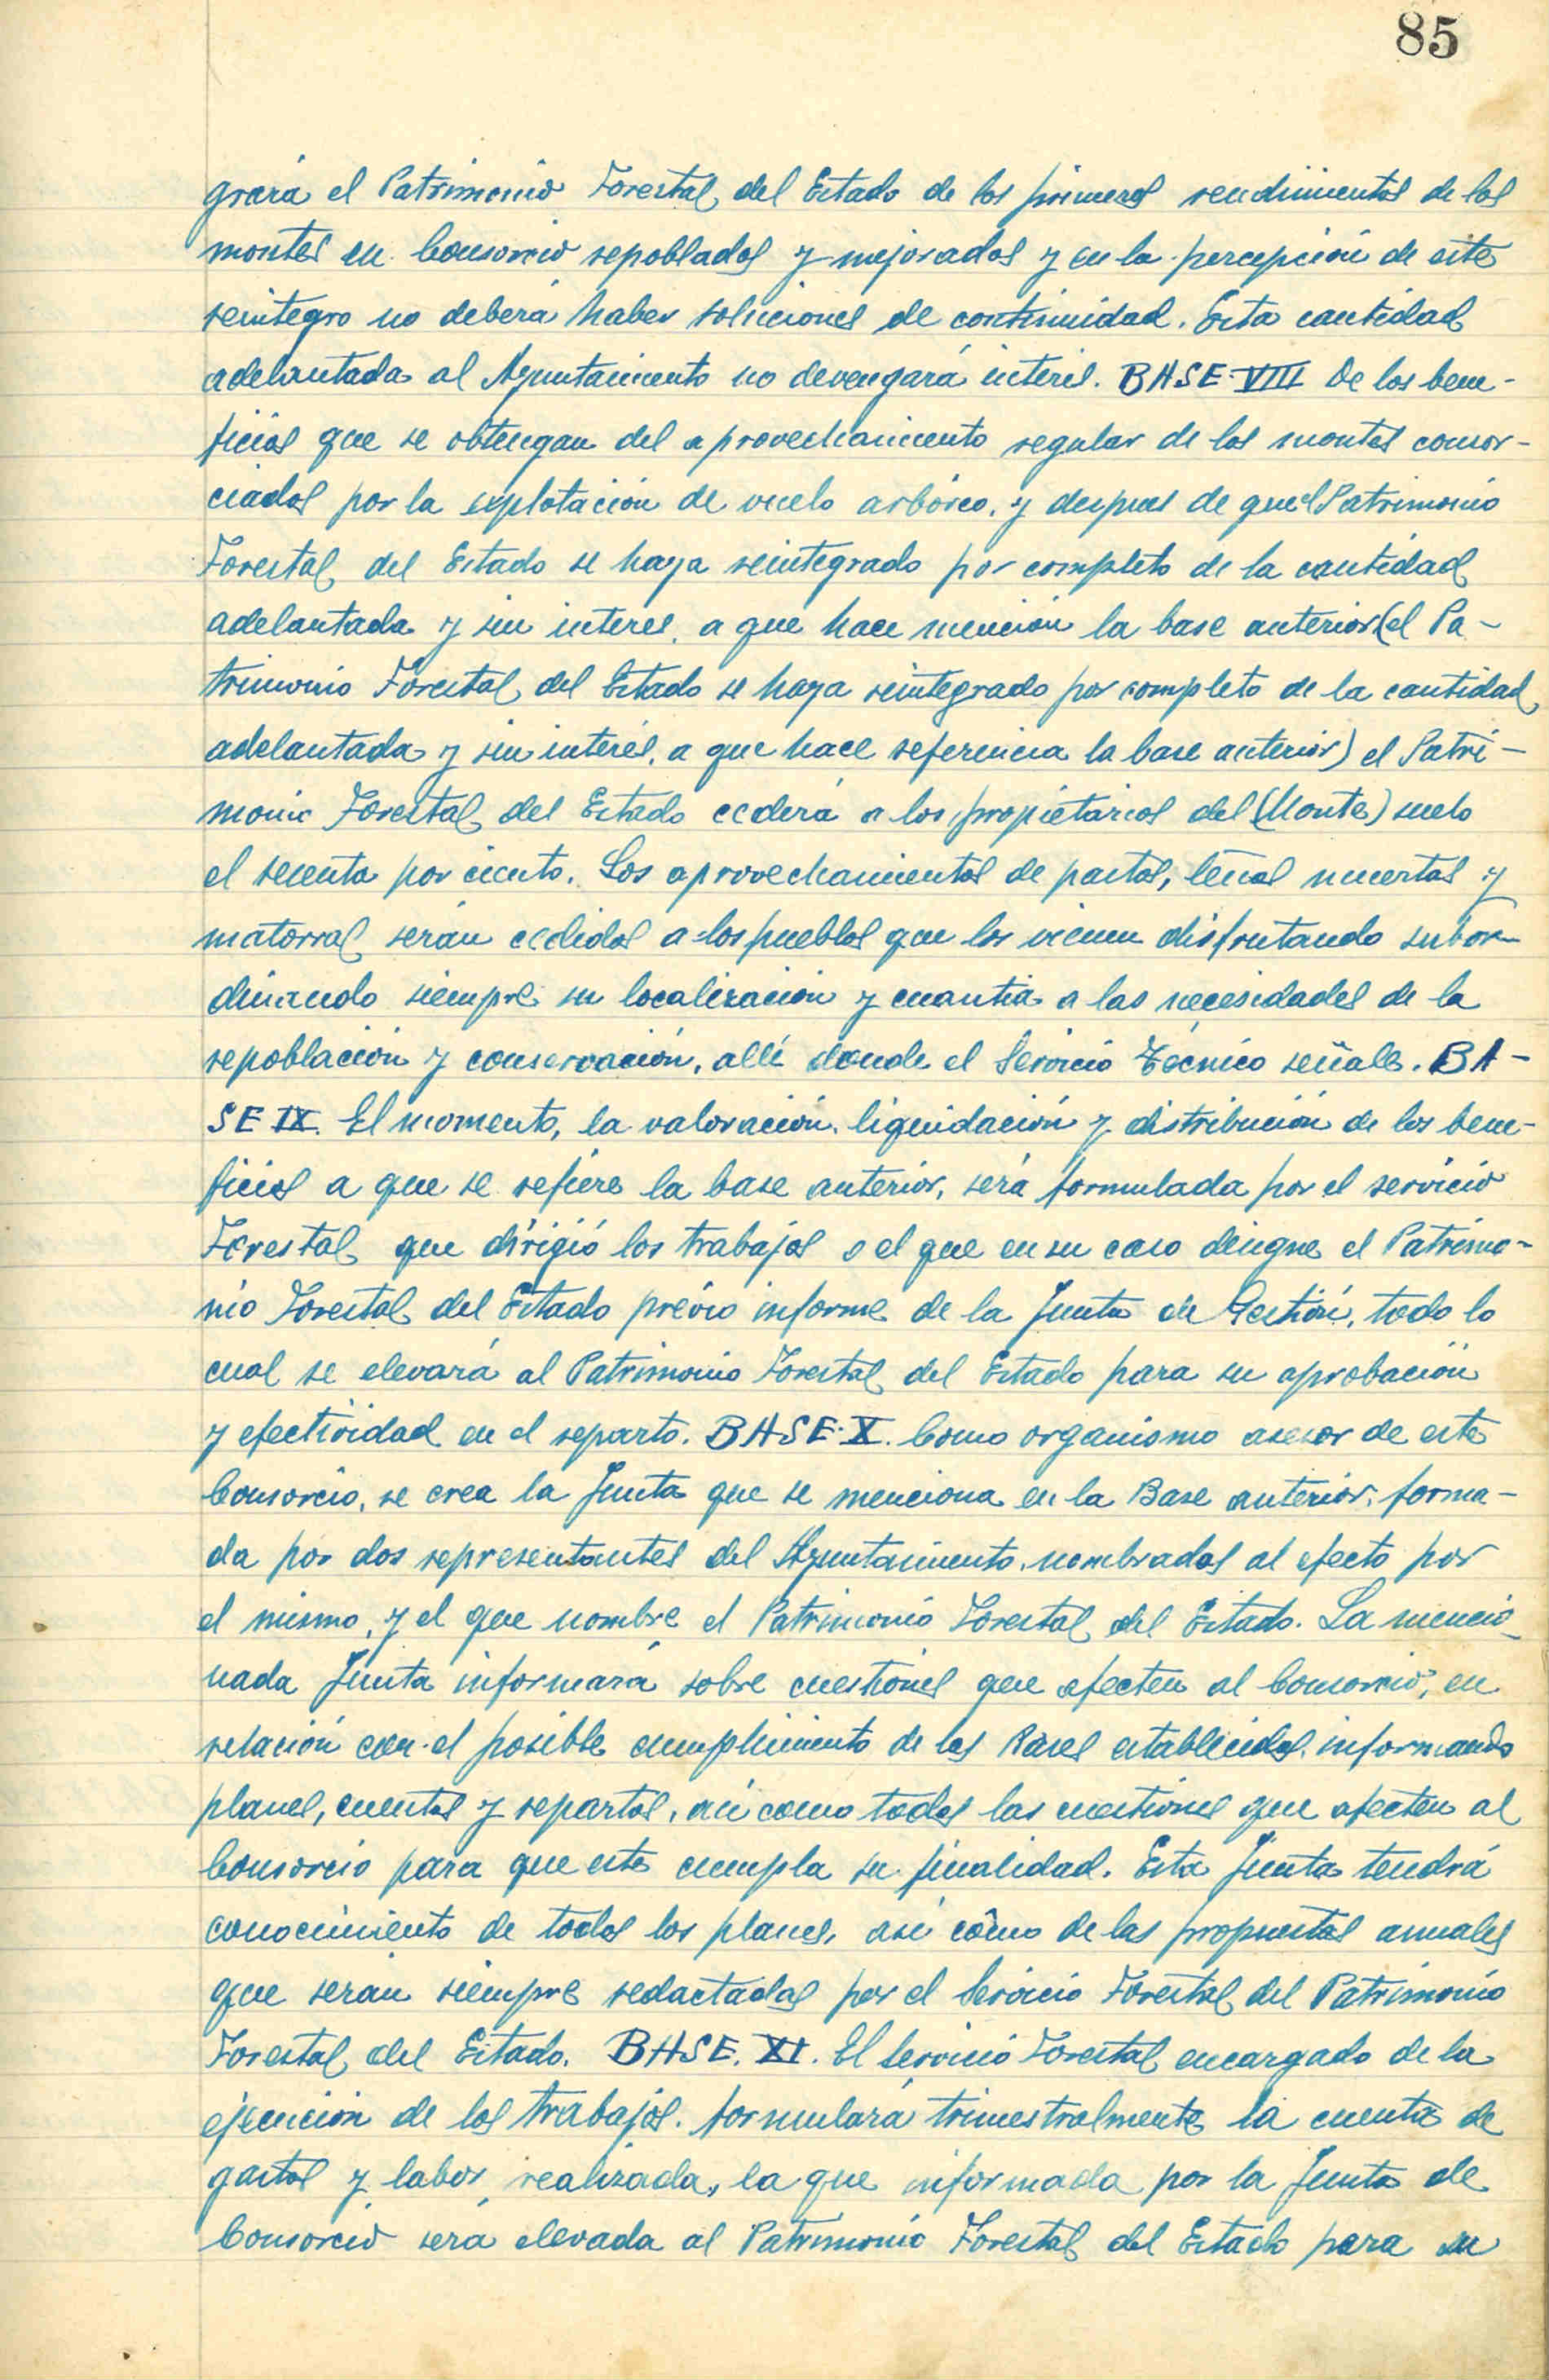 85
grará el Patrimonio Forestal del Estado de los primeros rendimientos de los
montes en Consorcio repoblados y mejorados y en la percepción de este
reintegro no deberá haber soluciones de continuidad. Esta cantidad
adelantada al Ayuntamiento no devengará interés. BASE VIII De los bene-
ficios que se obtengan del aprovechamiento regular de los montes consor-
ciados por la explotación de vuelo arbóreo, y despues de que el Patrimonio
Forestal del Estado se haya reintegrado por completo de la cantidad
adelantada y sin interes, a que hace mención la base anterior (el Pa-
trimonio Forestal del Estado se haya reintegrado por completo de la cantidad
adelantada y sin interés, a que hace referencia la base anterior) el Patri-
monio Forestal del Estado cederá a los propietarios del (Monte) suelo
el sesenta por ciento. Los aprovechamientos de pastos, leñas muertas y
matorral serán cedidos a los pueblos que los vienen disfrutando subor-
dinando siempre su localización y cuantía a las necesidades de la
repoblación y conservación, allí donde el Servicio Técnico señale. BA-
SE IX. El momento, la valoración, liquidación y distribución de los bene-
ficios a que se refiere la base anterior, será formulada por el servicio
Forestal que dirigió los trabajos o el que en su caso designe el Patrimo-
nio Forestal del Estado previo informe de la Junta de Gestión, todo lo
cual se elevará al Patrimonio Forestal del Estado para su aprobación
y efectividad en el reparto. BASE X. Como organismo asesor de este
Consorcio, se crea la Junta que se menciona en la Base anterior, forma-
da por dos representantes del Ayuntamiento, nombrados al efecto por
el mismo, y el que nombre el Patrimonio Forestal del Estado. La mencio-
nada Junta informará sobre cuestiones que afecten al Consorcio, en
relación con el posible cumplimiento de las Bases establecidas, informando
planes, cuentas y repartos, así como todas las cuestiones que afecten al
Consorcio para que este cumpla su finalidad. Esta Junta tendrá
conocimiento de todos los planes, así como de las propuestas anuales
que seran siempre redactadas por el Servicio Forestal del Patrimonio
Forestal del Estado. BASE. XI. El Servicio Forestal encargado de la
ejecución de los trabajos, formulará trimestralmente la cuenta de
gastos y labor realizada, la que informada por la Junta de
Consorcio será elevada al Patrimonio Forestal del Estado para su